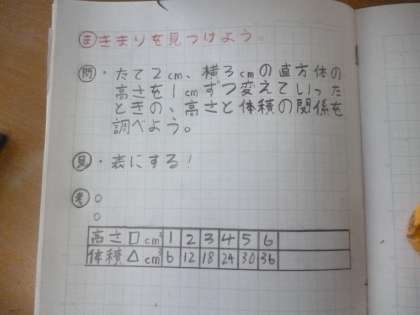 ま きまりを見つけよう。
問・たて2cm、横3cmの直方体の
高さを1cmずつ変えていった
ときの、高さと体積の関係を
調べよう。
見・表にする!
考 ○
○
高さ□cm 1 2 3 4 5 6
体積△cm³ 6 12 18 24 30 36